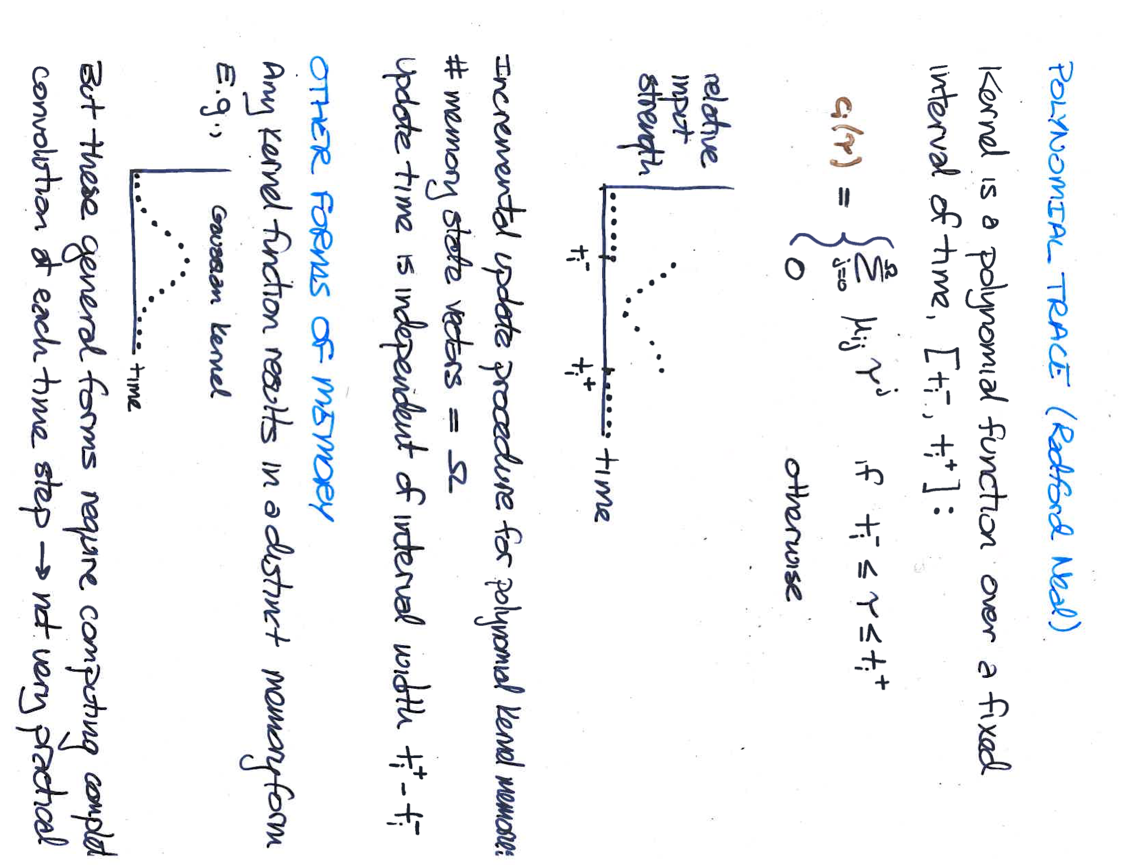 POLYNOMIAL TRACE (Radford Neal)
Kernel is a polynomial function over a fixed
interval of time, [tᵢ⁻, tᵢ⁺]:
cᵢ(τ) = { Σ_{j=0}^{Ω} μᵢⱼ τʲ if tᵢ⁻ ≤ τ ≤ tᵢ⁺
0 otherwise
relative
input
strength
tᵢ⁻ tᵢ⁺ time
Incremental update procedure for polynomial kernel memories
# memory state vectors = Ω
update time is independent of interval width tᵢ⁺ - tᵢ⁻
OTHER FORMS OF MEMORY
Any kernel function results in a distinct memory form
E.g.,
Gaussian kernel
time
But these general forms require computing complet
convolution at each time step → not very practical